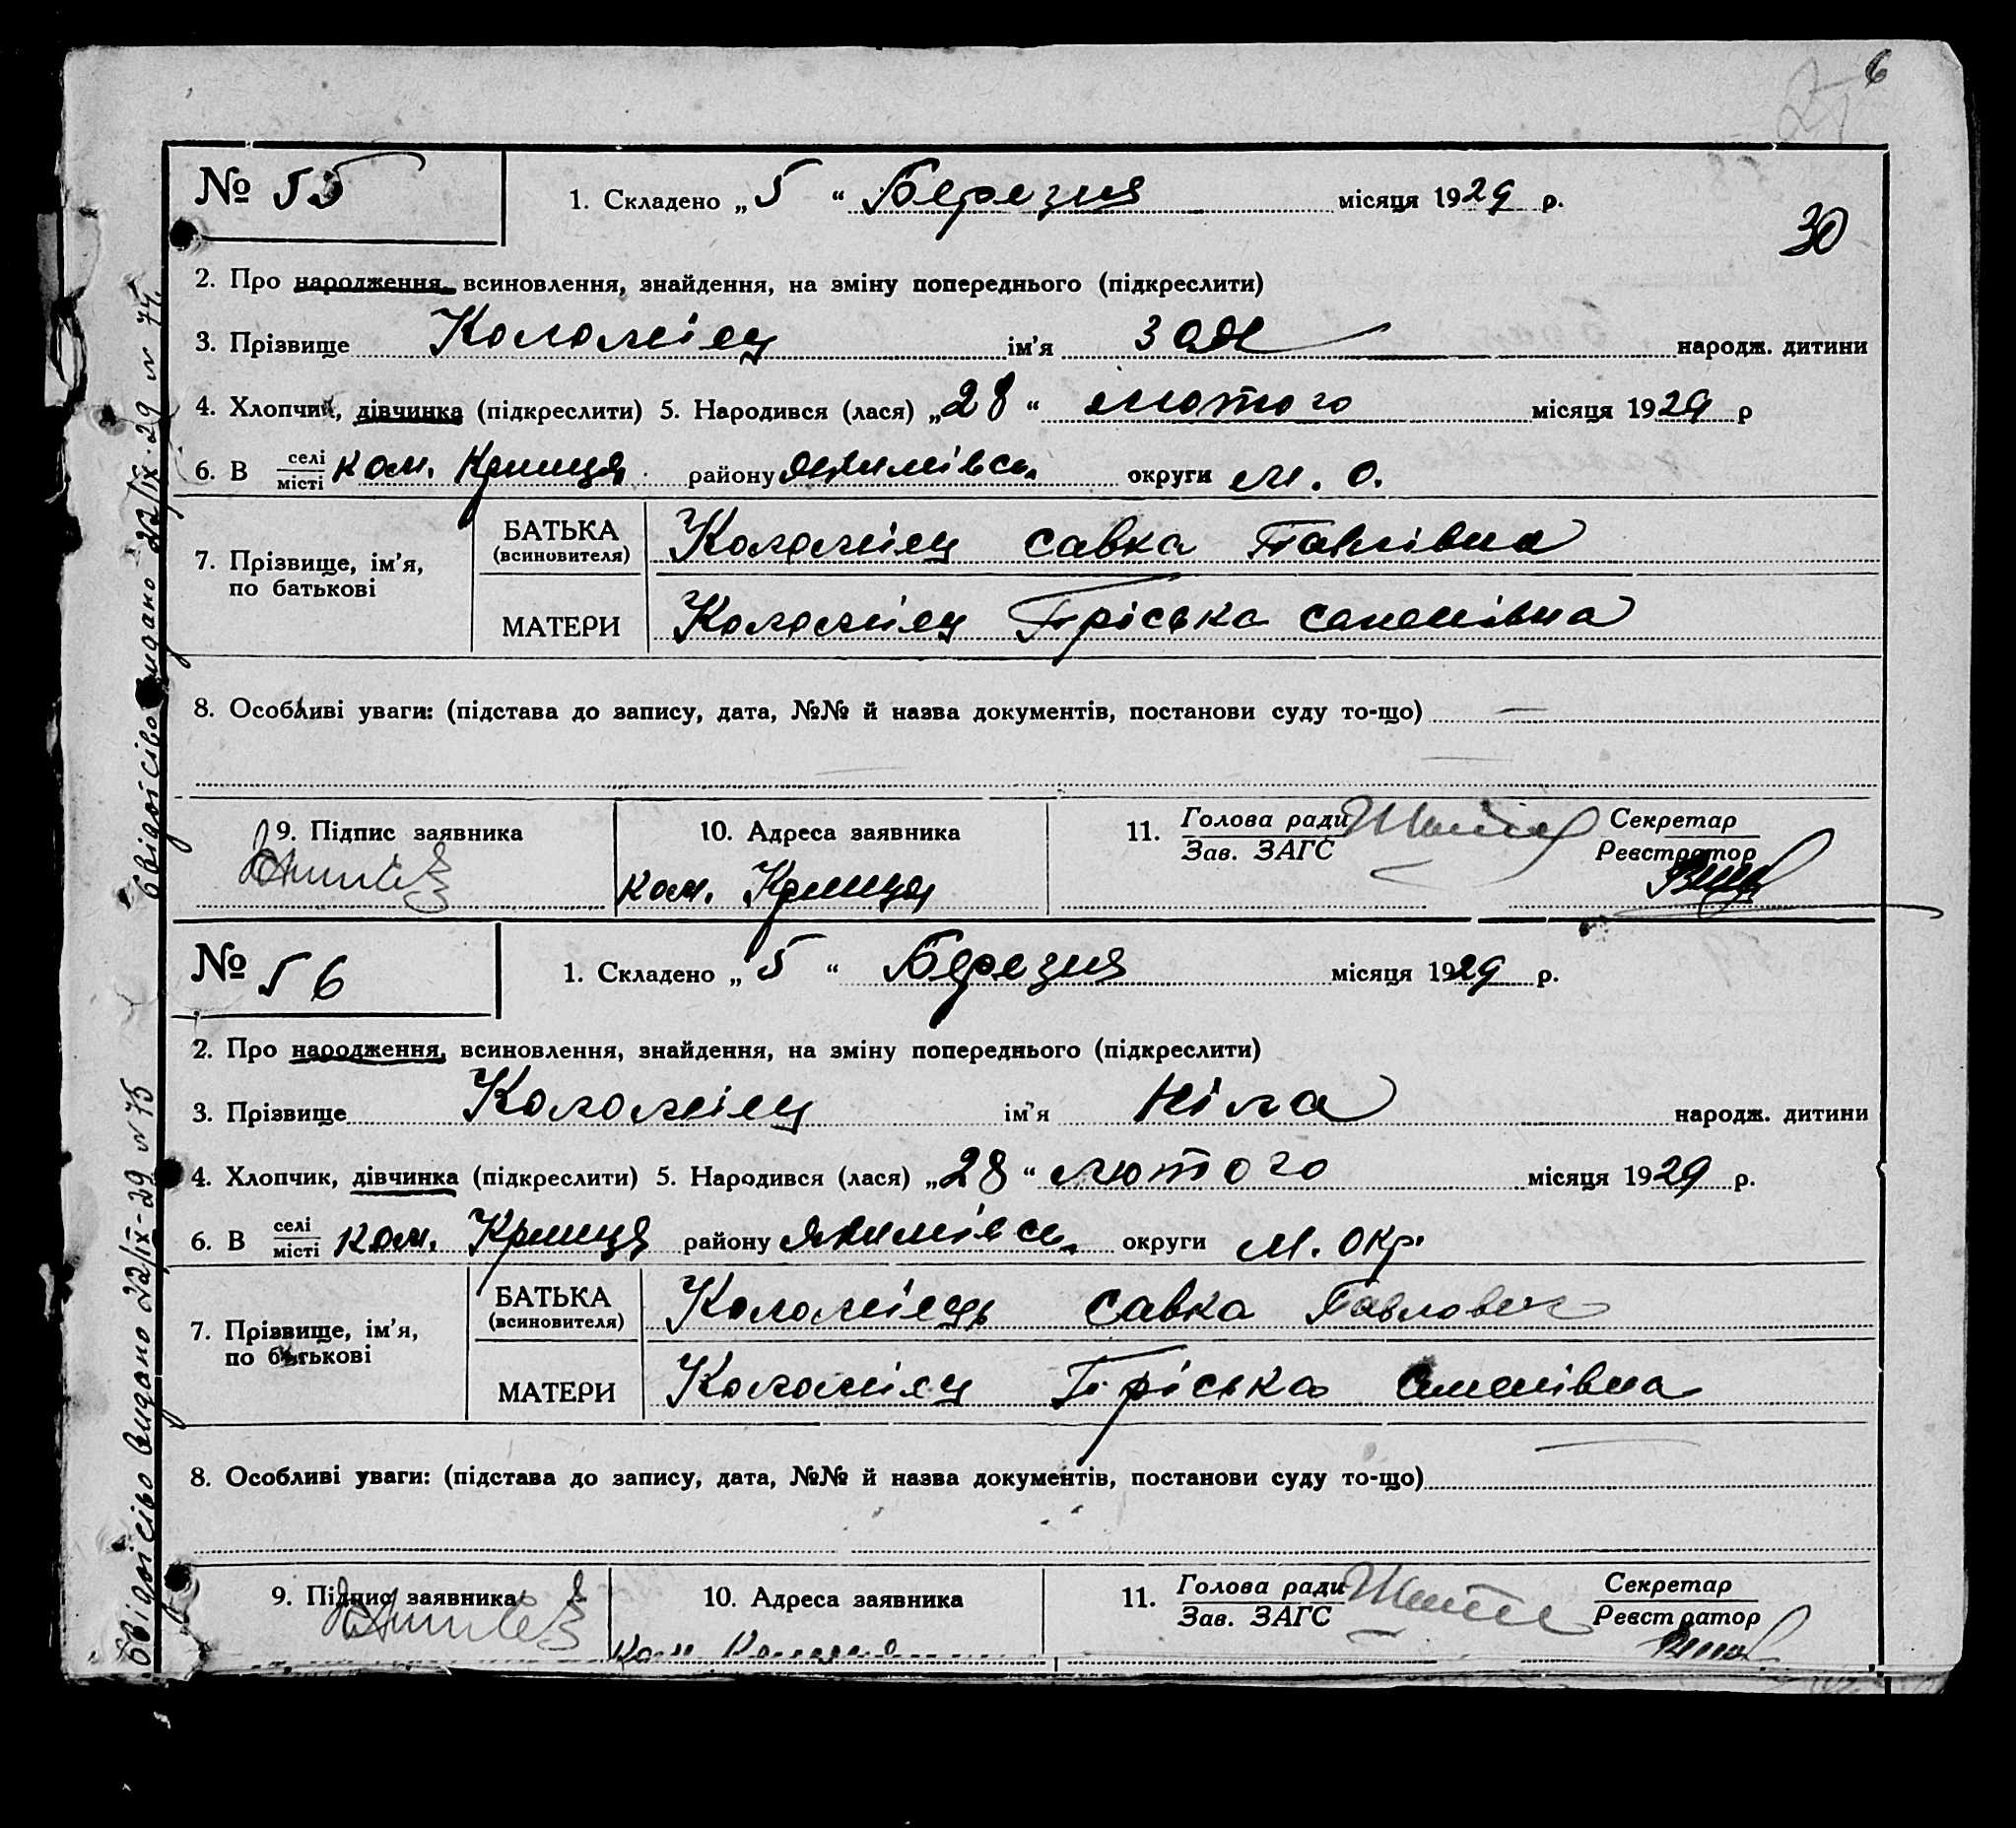 6
№ 55
1. Складено „5“ Березня місяця 1929 р.
30
2. Про народження, всиновлення, знайдення, на зміну попереднього (підкреслити)
3. Прізвище Коломієц ім’я Зоя народж. дитини
4. Хлопчик, дівчинка (підкреслити) 5. Народився (лася) „28“ лютого місяця 1929 р
6. В селі/місті ком. Криниця району Якимівськ. округи М. О.
7. Прізвище, ім’я, по батькові
БАТЬКА (всиновителя) Коломієц Савка Павлівна
МАТЕРИ Коломієц Пріська Семенівна
8. Особливі уваги: (підстава до запису, дата, №№ й назва документів, постанови суду то-що)
9. Підпис заявника
10. Адреса заявника
ком. Криниця
11. Голова ради
Зав. ЗАГС
Секретар
Реєстратор
Свідоцтво видано 22/IX-29 N 74
№ 56
1. Складено „5“ Березня місяця 1929 р.
2. Про народження, всиновлення, знайдення, на зміну попереднього (підкреслити)
3. Прізвище Коломієц ім’я Ніла народж. дитини
4. Хлопчик, дівчинка (підкреслити) 5. Народився (лася) „28“ лютого місяця 1929 р.
6. В селі/місті ком. Криниця району Якимівськ. округи М. окр.
7. Прізвище, ім’я, по батькові
БАТЬКА (всиновителя) Коломієць Савка Павлович
МАТЕРИ Коломієц Пріська Семенівна
8. Особливі уваги: (підстава до запису, дата, №№ й назва документів, постанови суду то-що)
9. Підпис заявника
10. Адреса заявника
ком Криниця
11. Голова ради
Зав. ЗАГС
Секретар
Реєстратор
Свідоцтво видано 22/IX-29 N 75